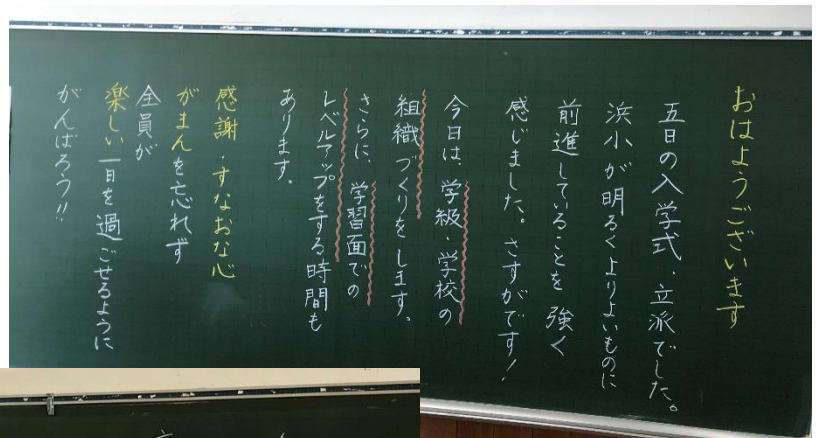 おはようございます
五日の入学式、立派でした。
浜小が明るくよりよいものに
前進していることを強く
感じました。さすがです!
今日は、学級・学校の
組織づくりをします。
さらに、学習面での
レベルアップをする時間も
あります。
感謝・すなおな心
がまんを忘れず
全員が
楽しい一日を過ごせるように
がんばろう!!